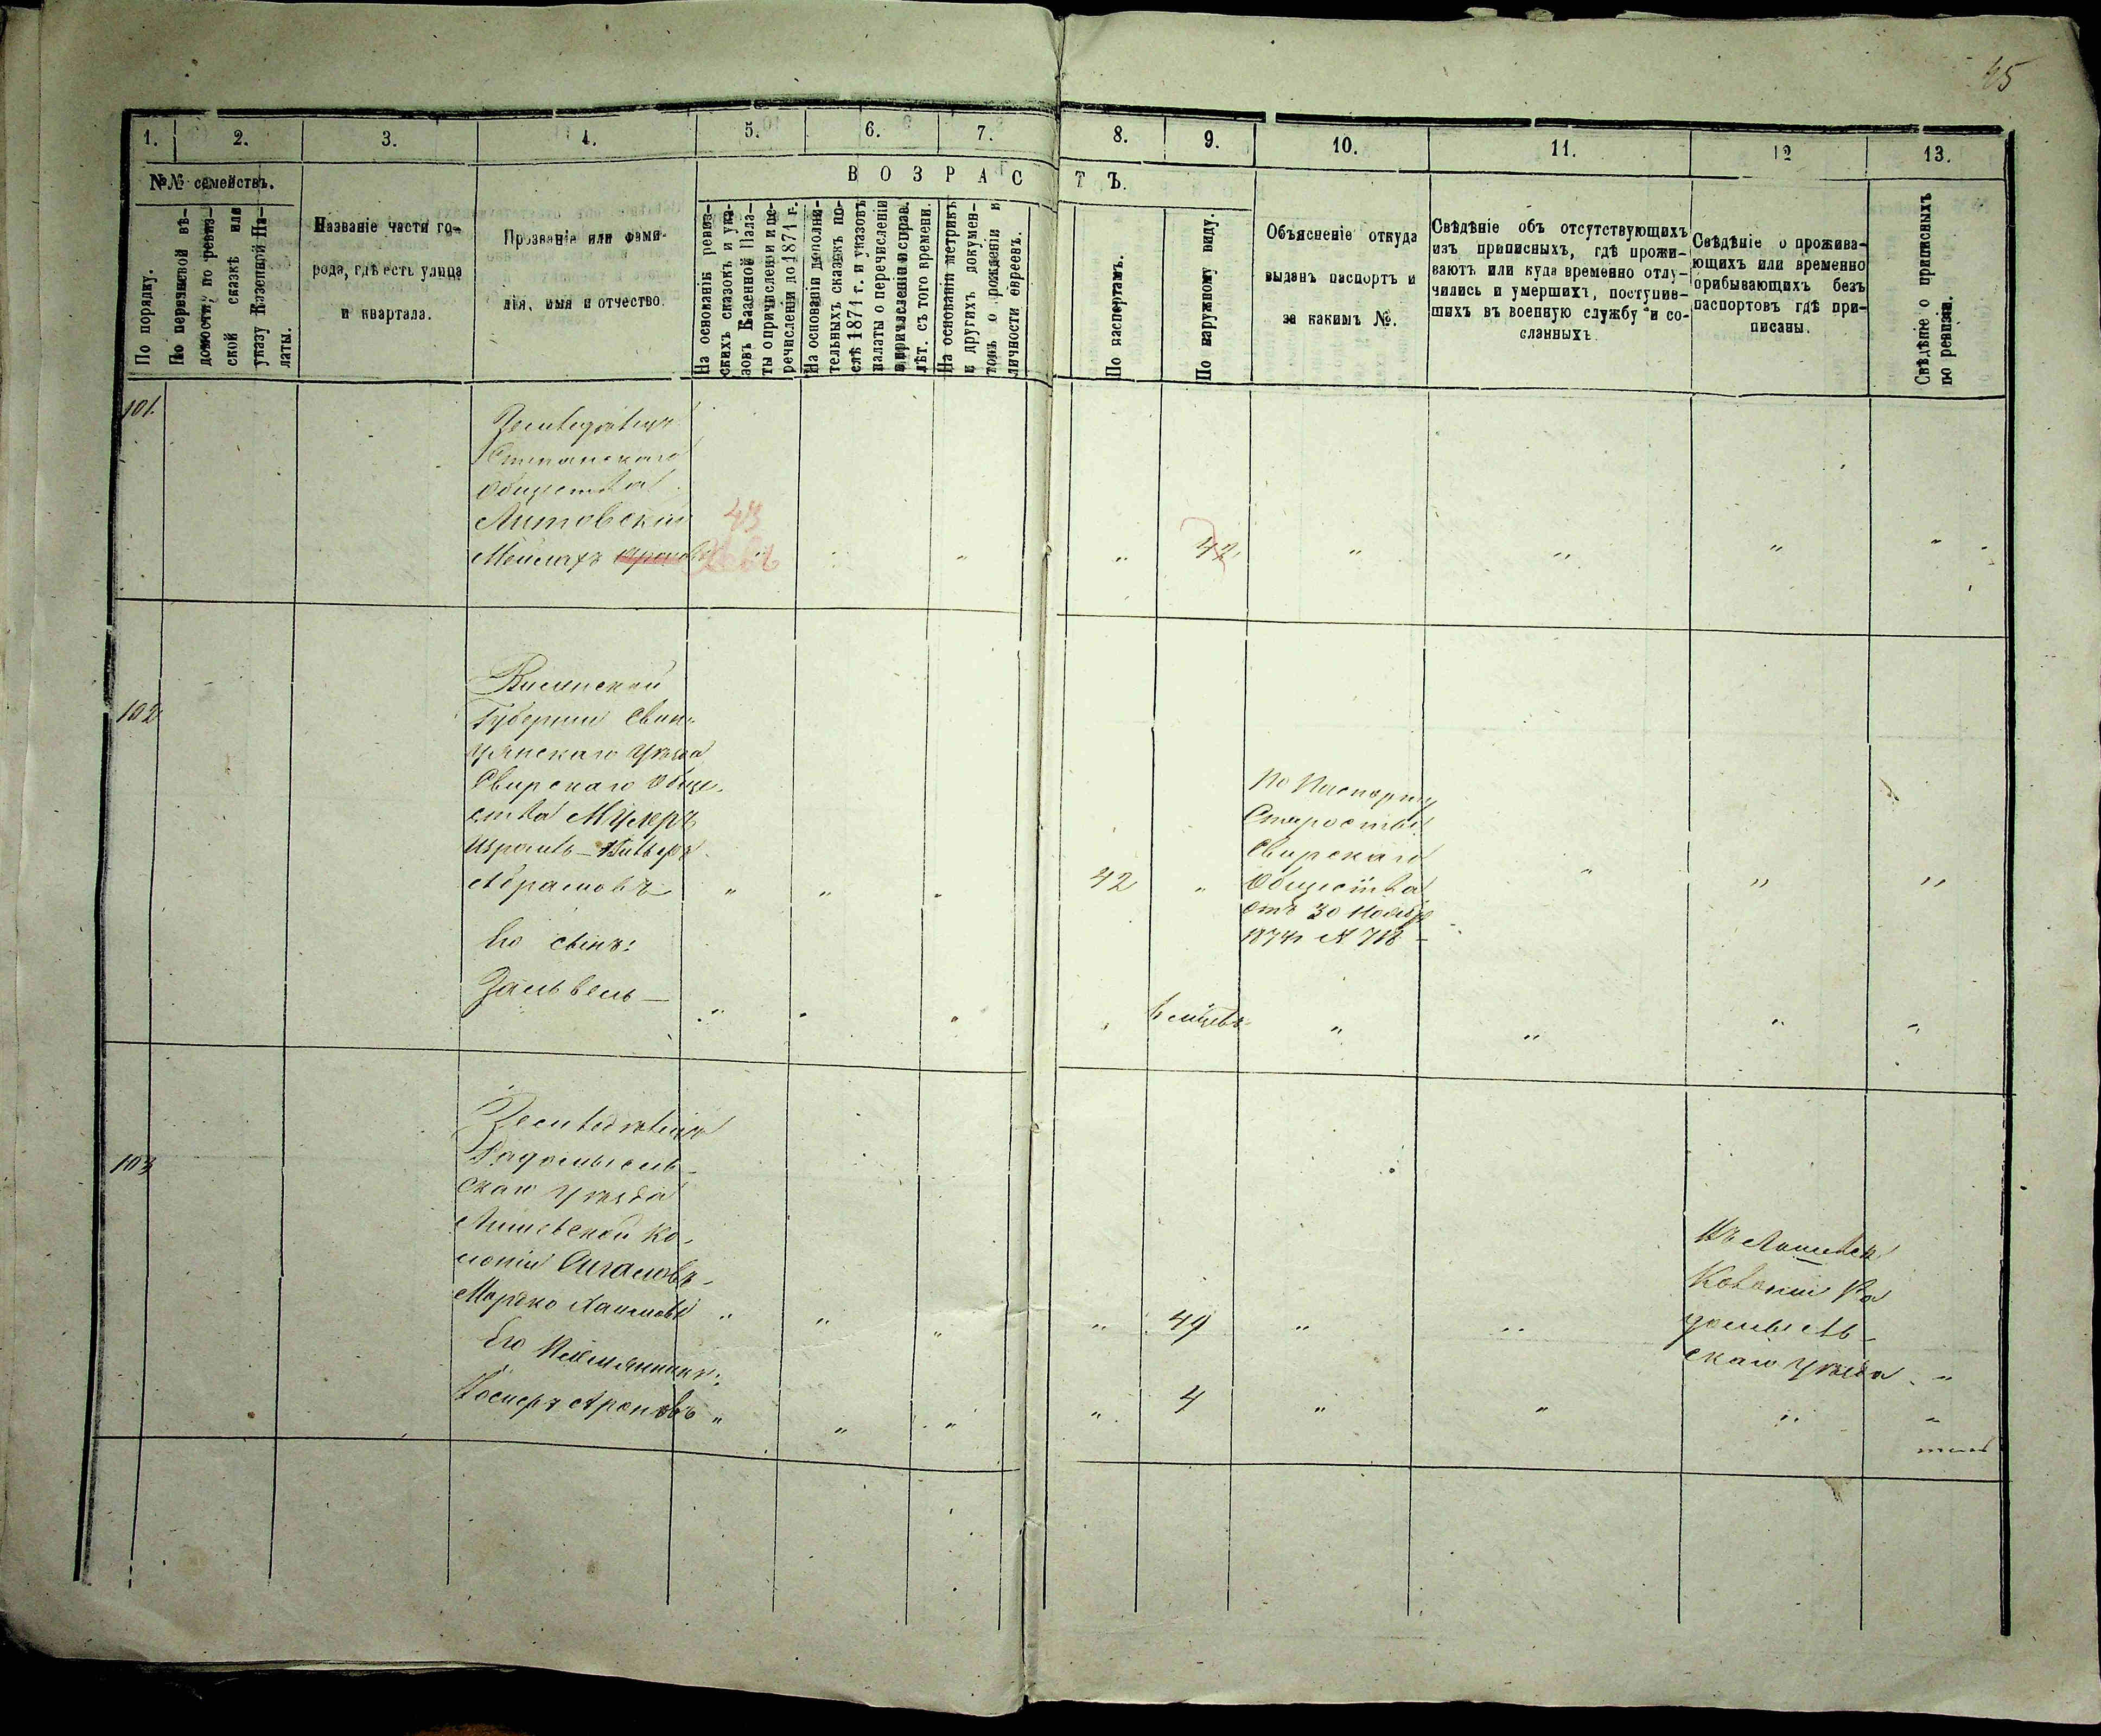 45
1. 2. 3. 4. 5. 6. 7. 8. 9. 10. 11. 12 13.
№№ семействъ.
В О З Р А С Т Ъ.
По порядку.
По перечневой вѣ-
домости, по ревиз-
ской сказкѣ или
указу Казенной Па-
латы.
Названіе части го-
рода, гдѣ есть улица
и квартала.
Прозваніе или фами-
лія, имя и отчество.
На основаніи ревиз-
скихъ сказокъ и ука-
зовъ Казенной Пала-
ты о причисленіи и пе-
речисленіи до 1871 г.
На основаніи дополни-
тельныхъ сказокъ по-
слѣ 1871 г. и указовъ
палаты о перечисленіи
и причисленіи и справ.
лѣт. съ того времени.
На основаніи метрикъ
и другихъ докумен-
товъ о рожденіи и
личности евреевъ.
По паспортамъ.
По наружному виду.
Объясненіе откуда
выданъ паспортъ и
за какимъ №.
Свѣдѣніе объ отсутствующихъ
изъ приписныхъ, гдѣ прожи-
ваютъ или куда временно отлу-
чились и умершихъ, поступив-
шихъ въ военную службу и со-
сланныхъ.
Свѣдѣніе о прожива-
ющихъ или временно
прибывающихъ безъ
паспортовъ гдѣ при-
писаны.
Свѣдѣніе о приписныхъ
по ревизіи.
101.
Земледѣлецъ
Степанскаго
Общества
Литовскій 43
Мейлахъ " " " 42 " " " "
102
Виленской
Губерніи Свен-
цянскаго Уѣзда
Свирскаго Обще-
ства Мулеръ
Израиль-
Абрамовъ " " " 42 "
По Паспорту
Старосты
Свирскаго
Общества
отъ 30 Ноября
1874 г № 718
" " "
Его сынъ:
Зальвель " " " " " " " "
103
Земледѣлецъ
Радомысль-
скаго Уѣзда
Ко-
лоніи
" " " " 49 " "
Колоніи Ра
домысль-
скаго Уѣзда "
Его Племянникъ:
Іосифъ Ароновъ " " " " 4 " " " "